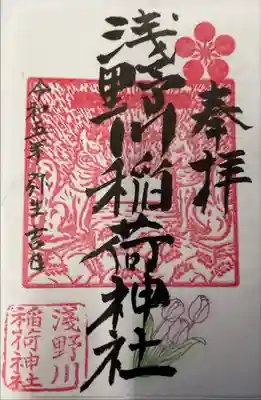 奉拝
淺野川稲荷神社
令和五年 弥生 吉日
淺野川
稲荷神社